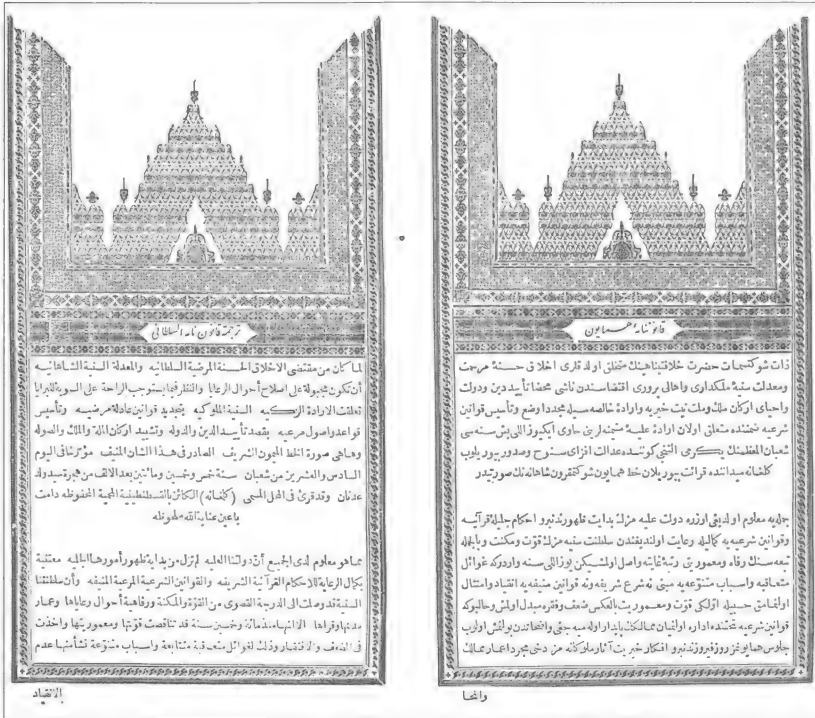 قانوننامهٔ همايون
ذات شوكتسمات حضرت خلافتپناهينك متخلق اولدقلری اخلاق حسنهٔ مرحمت
ومعدلت سنيهٔ ملكداری واهالی پروری اقتضاسندن ناشی محضا تأييد دين ودولت
واحيای اركان ملك وملت نيت خيريه وارادهٔ خالصه سيله مجددا وضع وتأسيس قوانين
شرعيه ضمننده متعلق اولان ارادهٔ عليهٔ متيمنه لرينی حاوی ايكيوز اللی بش سنه سی
شعبان المعظمنك يكرمی التنجی كوننده عدالت افزای سنوح وصدور بيوريلوب
كلخانه ميداننده قرائت بيوريلان خط همايون شوكتمقرون شاهانه نك صورتيدر
جمله يه معلوم اولديغی اوزره دولت عليه مزك بدايت ظهورندنبرو احكام جليلهٔ قرآنيه
وقوانين شرعيه يه كماليله رعايت اولنديغندن سلطنت سنيه مزك قوت ومكنت وبالجمله
تبعه سنك رفاه ومعموريتی رتبهٔ غايته واصل اولمشيكن يوز اللی سنه واردركه غوائل
متعاقبه واسباب متنوعه يه مبنی نه شرع شريفه ونه قوانين منيفه يه انقياد وامتثال
اولنمامق حسبيله اولكی قوت ومعموريت بالعكس ضعف وفقره مبدل اولمش وحالبوكه
قوانين شرعيه تحتنده اداره اولنميان ممالكك پايدار اوله ميه جغی واضحاتدن بولنمش اولوب
جلوس همايونمز روز فيروزندنبرو افكار خيريت آثار ملوكانه مز دخی مجرد اعمار ممالك
وانحا
ترجمة قانون نامه السلطانی
لما كان من مقتضی الاخلاق الحسنة المرضية السلطانيه والمعدلة السنية الشاهانيه
أن تكون مجبولة علی اصلاح أحوال الرعايا والنظر فيما يستوجب الراحة علی السوية للبرايا
تعلقت الارادة الزكيه السنية الملوكيه بتجديد قوانين عادلة مرضيه وتأسيس
قواعد واصول مرعيه بقصد تأييد الدين والدوله وتشييد اركان الملة والملك والصوله
وهاهی صورة الخط الهميون الشريف الصادر فی هذا الشان المنيف مؤرخا فی اليوم
السادس والعشرين من شعبان سنة خمس وخمسين ومائتين بعد الالف من هجرة سيد ولد
عدنان وقد قرئ فی المحل المسمی (كلخانه) الكائن بالقسطنطينية المحمية المحفوظه دامت
باعين عناية الله ملحوظه
مما هو معلوم لدی الجميع أن دولتنا العليه لم تزل من بداية ظهور أمورها الجليله معتنية
بكمال الرعاية للاحكام القرآنية الشريفه والقوانين الشرعية المرعية المنيفه وأن سلطنتنا
السنية قد وصلت الی الدرجة القصوی من القوة والمكنة ورفاهية أحوال رعاياها وعمار
مدنها وقراها الا انها منذ مائة وخمسين سنة قد تناقصت قوتها ومعموريتها واخذت
فی الضعف والافتقار وذلك لغوائل متعاقبة متتابعة واسباب متنوعة نشأ منها عدم
الانقياد